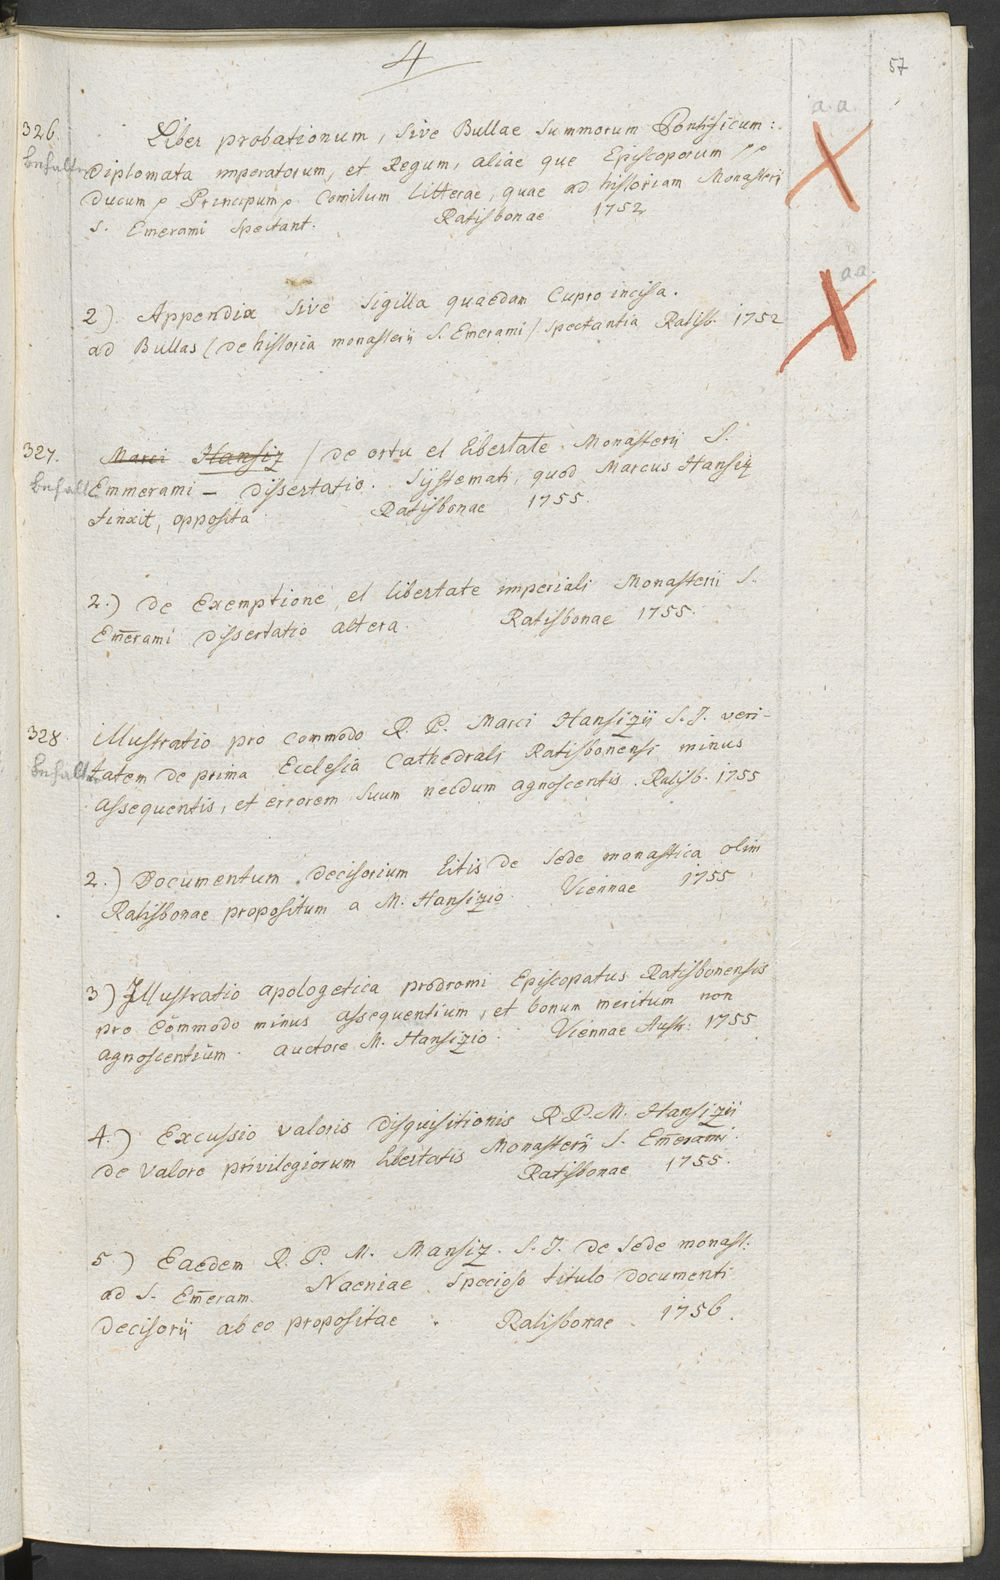 4
57
a.a.
326. Liber probationum, sive Bullae summorum Pontificum:
behalten diplomata imperatorum, et Regum, aliae que Episcoporum
Ducum, Principum, Comitum litterae, quae ad historiam Monasterij
S. Emerami spectant. Ratisbonae 1752
a.a.
2). Appendix sive sigilla quaedam Cupro incisa.
ad Bullas (de historia monasterij S. Em̄erami) spectantia Ratisb. 1752
327. Marci Hansiz / de ortu et libertate Monasterij S.
behalt Emmerami – dissertatio. Systemati, quod Marcus Hansiz
finxit, opposita Ratisbonae 1755.
2.) de Exemptione, et libertate imperiali Monasterii S.
Em̄erami dissertatio altera. Ratisbonae 1755.
328. illustratio pro commodo R. P. Marci Hansizii S. J. veri-
behalten tatem de prima Ecclesia Cathedrali Ratisbonensi minus
assequentis, et errorem suum necdum agnoscentis. Ratisb. 1755
2.) Documentum decisorium litis de sede monastica olim
Ratisbonae propositum a M. Hansizio. Viennae 1755
3) Illustratio apologetica prodromi Episcopatus Ratisbonensis
pro com̄odo minus assequentium, et bonum meritum non
agnoscentium. auctore M. Hansizio. Viennae Austr: 1755
4.) Excussio valoris disquisitionis R. P. M. Hansizii
de valore privilegiorum libertatis Monasterij S. Em̄erami.
Ratisbonae 1755.
5.) Eaedem R. P. M. Mansiz. S. J. de sede monast:
ad S. Em̄eram. Naeniae specioso titulo documenti
decisorij ab eo propositae. Ratisbonae 1756.